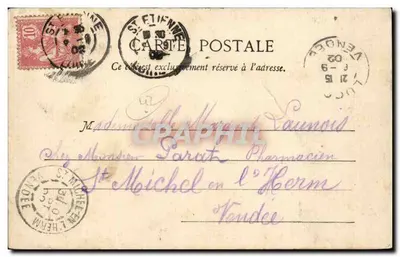 10
ST ETIENNE
02
LOIRE
ST ETIENNE
02
LOIRE
CARTE POSTALE
Ce côté est exclusivement réservé à l'adresse.
LUÇON
VENDÉE
02
Mademoiselle Launois
Chez Monsieur Parat Pharmacien
St Michel en l'Herm
Vendée
ST MICHEL-EN-L'HERM
VENDÉE